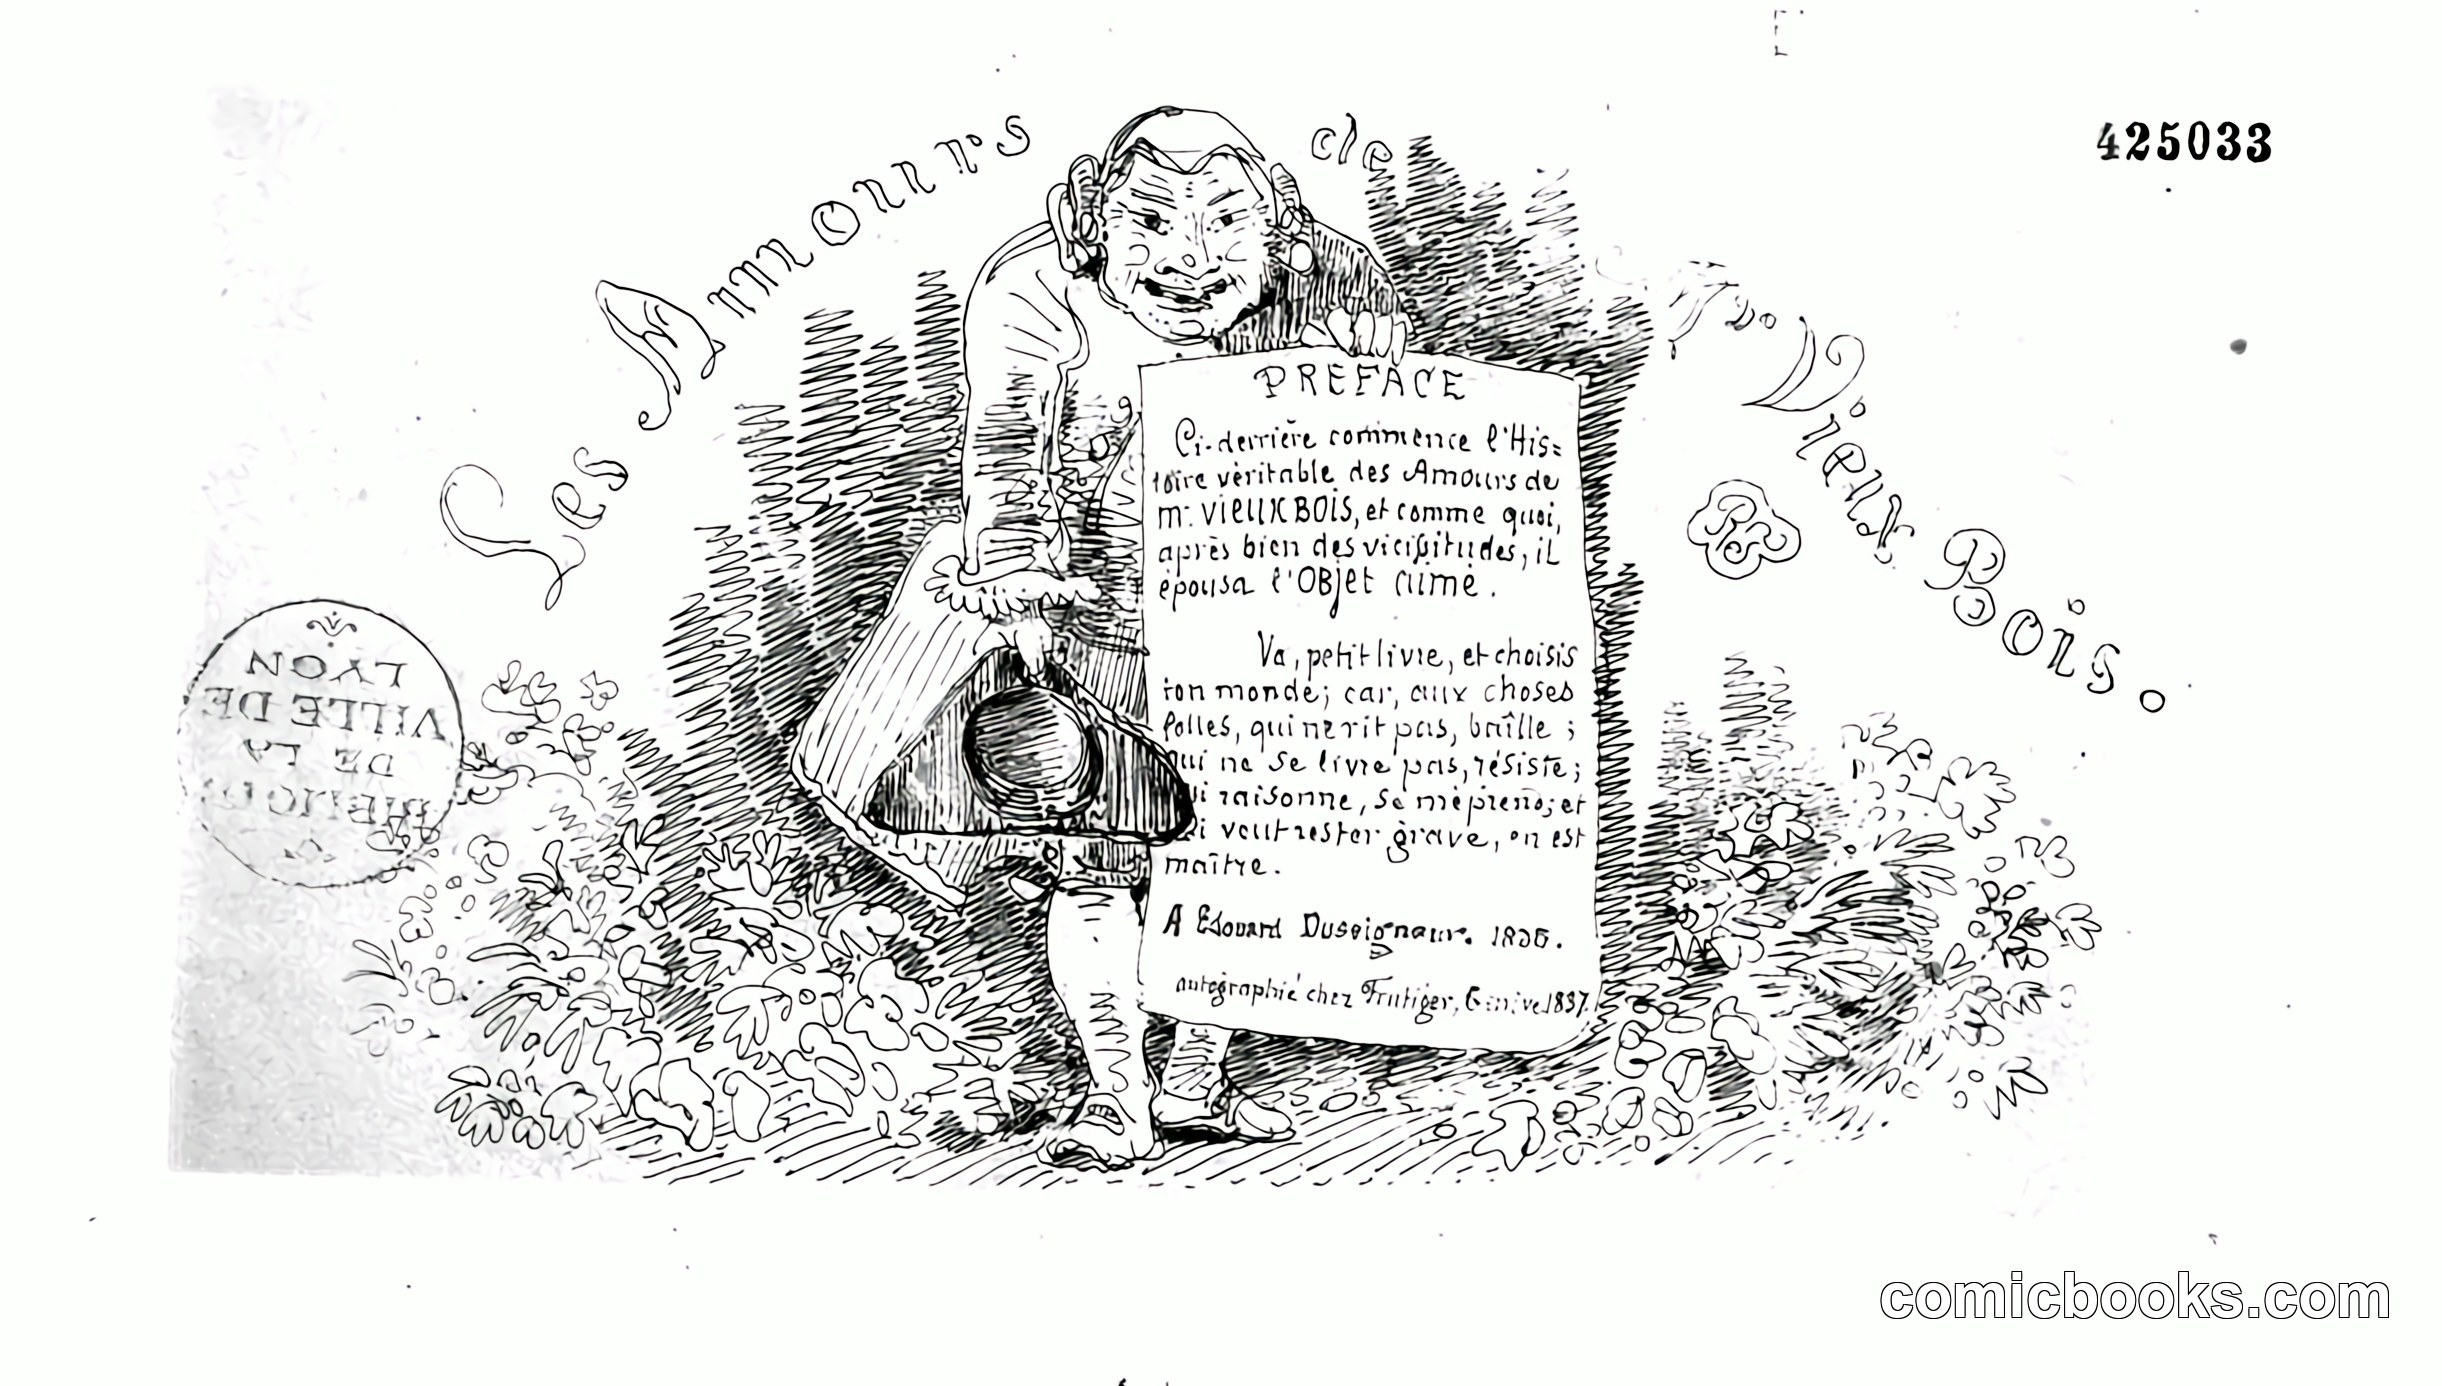 425033
Les Amours de Mr. Vieux Bois.
PREFACE
Ci-derrière commence l'His=
toire vèritable des Amours de
mr. VIEUX BOIS, et comme quoi,
après bien des vicissitudes, il
épousa l'OBjet aimé.
Va, petit livre, et choisis
ton monde; car, aux choses
folles, qui ne rit pas, baîlle;
qui ne se livre pas, résiste;
qui raisonne, se mèprend; et
qui veut rester grave, on est
maître.
A Edouard Duseigneur. 1836.
autographié chez Frutiger, Genève 1837.
LYON
VILLE DE
DE LA
comicbooks.com